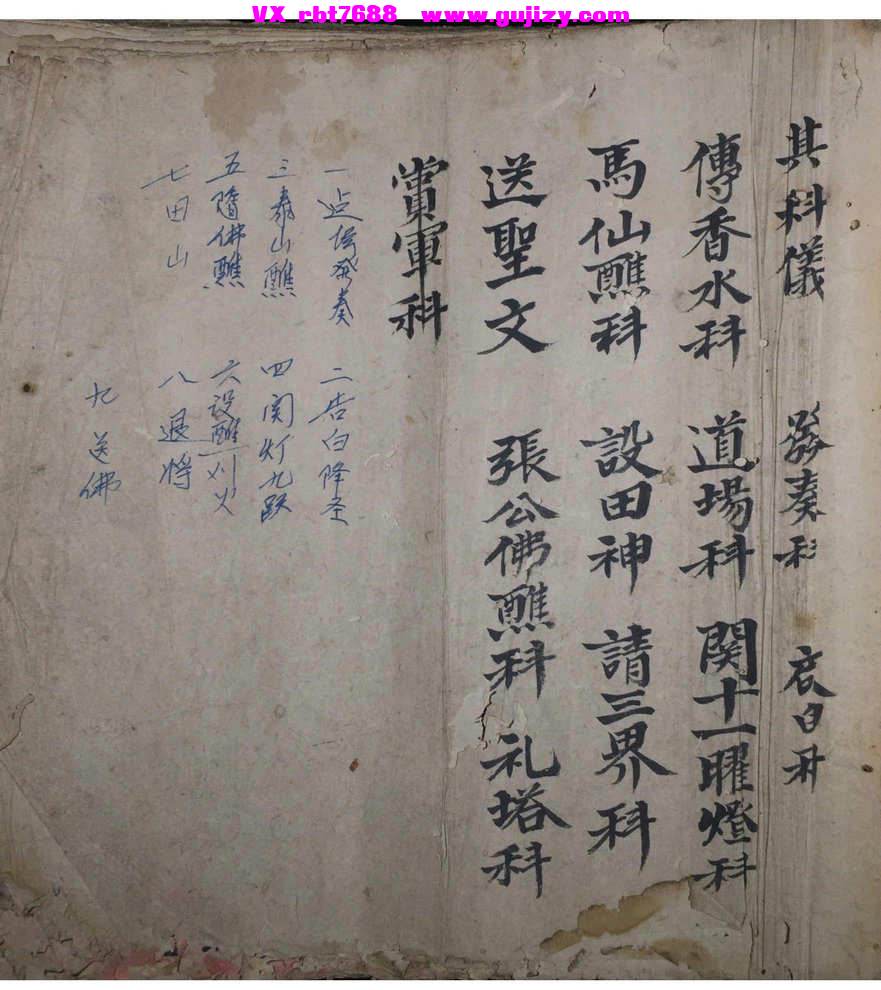 VX rbt7688 www.gujizy.com
其科儀 發奏科 底白册
傳香水科 道場科 関十一曜燈科
馬仙醮科 設田神 請三界科
送聖文 張公佛醮科 礼塔科
賞軍科
一 发奏 二 告白降圣
三 泰山醮 四 関灯九
五 佛醮 六 设醮 火
七 田山 八 退将
九 送佛